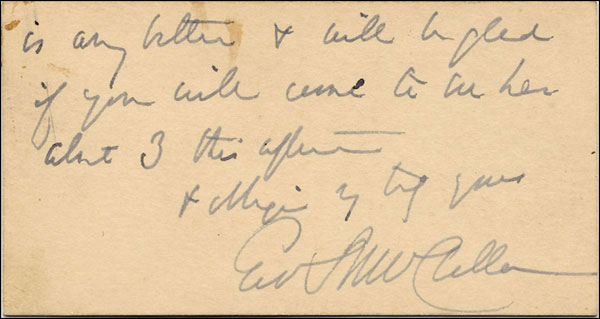 is any better & will be glad
if you will come to see her
about 3 this afternoon
& oblige yours
McClellan